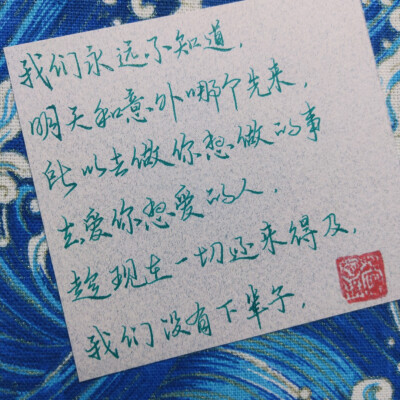 我们永远不知道,
明天和意外哪个先来,
所以去做你想做的事
去爱你想爱的人,
趁现在一切还来得及,
我们没有下辈子,